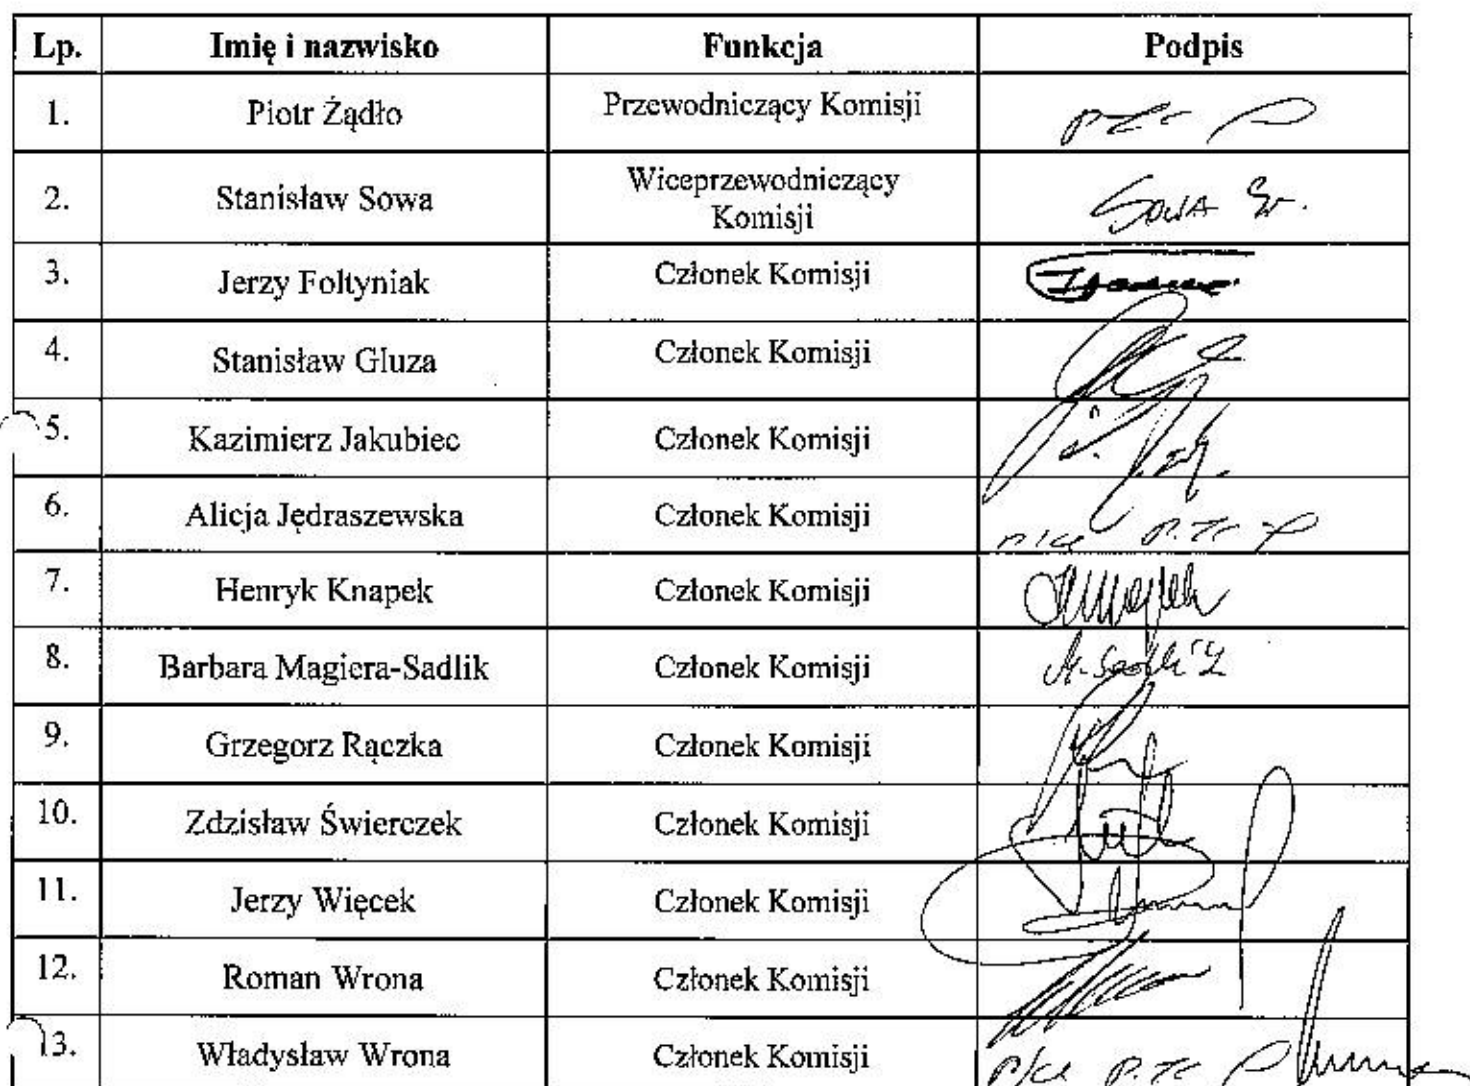 Lp. Imię i nazwisko Funkcja Podpis
1. Piotr Żądło Przewodniczący Komisji
2. Stanisław Sowa Wiceprzewodniczący
Komisji SOWA St.
3. Jerzy Foltyniak Członek Komisji
4. Stanisław Gluza Członek Komisji
5. Kazimierz Jakubiec Członek Komisji
6. Alicja Jędraszewska Członek Komisji
7. Henryk Knapek Członek Komisji
8. Barbara Magiera-Sadlik Członek Komisji
9. Grzegorz Rączka Członek Komisji
10. Zdzisław Świerczek Członek Komisji
11. Jerzy Więcek Członek Komisji
12. Roman Wrona Członek Komisji
13. Władysław Wrona Członek Komisji